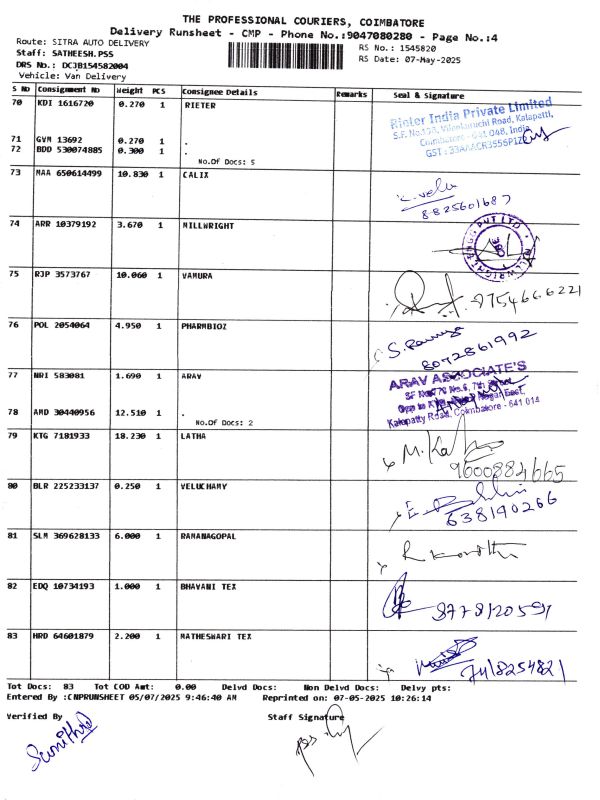 THE PROFESSIONAL COURIERS, COIMBATORE
Delivery Runsheet - CMP - Phone No.:9047080280 - Page No.:4
Route: SITRA AUTO DELIVERY
Staff: SATHEESH.PSS
DRS No.: DCJB154582004
Vehicle: Van Delivery
RS No.: 1545820
RS Date: 07-May-2025
S No Consignment No Weight PCS Consignee Details Remarks Seal & Signature
70 KDI 1616720 0.270 1 RIETER
Rieter India Private Limited
Coimbatore - 641 048, India
71 GVM 13692 0.270 1 .
72 BDD 530074885 0.300 1 .
No.Of Docs: 5
73 MAA 650614499 10.830 1 CALIX
8825601687
74 ARR 10379192 3.670 1 MILLWRIGHT
75 RJP 3573767 10.060 1 VAMURA
9754666221
76 POL 2054064 4.950 1 PHARMBIOZ
S. Ramya
8072861992
77 NRI 583081 1.690 1 ARAV
ARAV ASSOCIATE'S
Kalapatty Road, Coimbatore - 641 014
78 AMD 30440956 12.510 1 .
No.Of Docs: 2
79 KTG 7181933 18.230 1 LATHA
9600884665
80 BLR 225233137 0.250 1 VELUCHAMY
638190266
81 SLM 369628133 6.000 1 RAMANAGOPAL
82 EDQ 10734193 1.000 1 BHAVANI TEX
8778120591
83 HRD 64601879 2.200 1 MATHESWARI TEX
7418254821
Tot Docs: 83 Tot COD Amt: 0.00 Delvd Docs: Non Delvd Docs: Delvy pts:
Entered By :CNPRUNSHEET 05/07/2025 9:46:40 AM Reprinted on: 07-05-2025 10:26:14
Verified By
Staff Signature